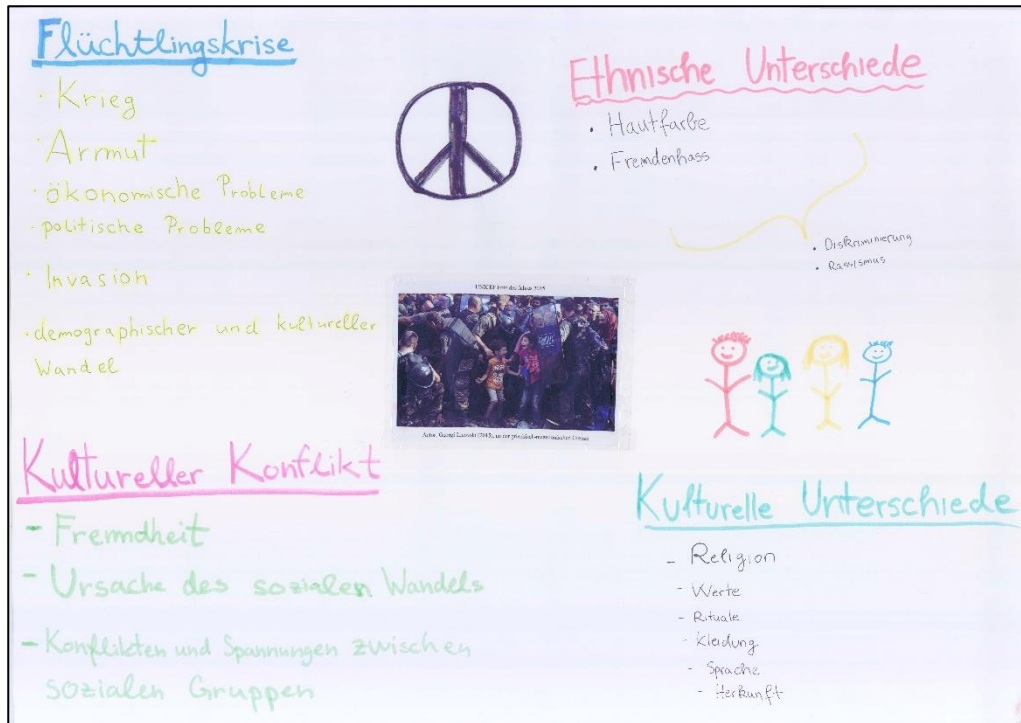 Flüchtlingskrise
· Krieg
· Armut
· ökonomische Probleme
· politische Probleme
· Invasion
· demographischer und kultureller
Wandel
Ethnische Unterschiede
• Hautfarbe
• Fremdenhass
• Diskriminierung
• Rassismus
UNICEF Foto des Jahres 2015
Autor: Georgi Licovski (2015), an der griechisch-mazedonischen Grenze
Kultureller Konflikt
- Fremdheit
- Ursache des sozialen Wandels
- Konflikten und Spannungen zwischen
sozialen Gruppen
Kulturelle Unterschiede
- Religion
- Werte
- Rituale
- Kleidung
- Sprache
- Herkunft